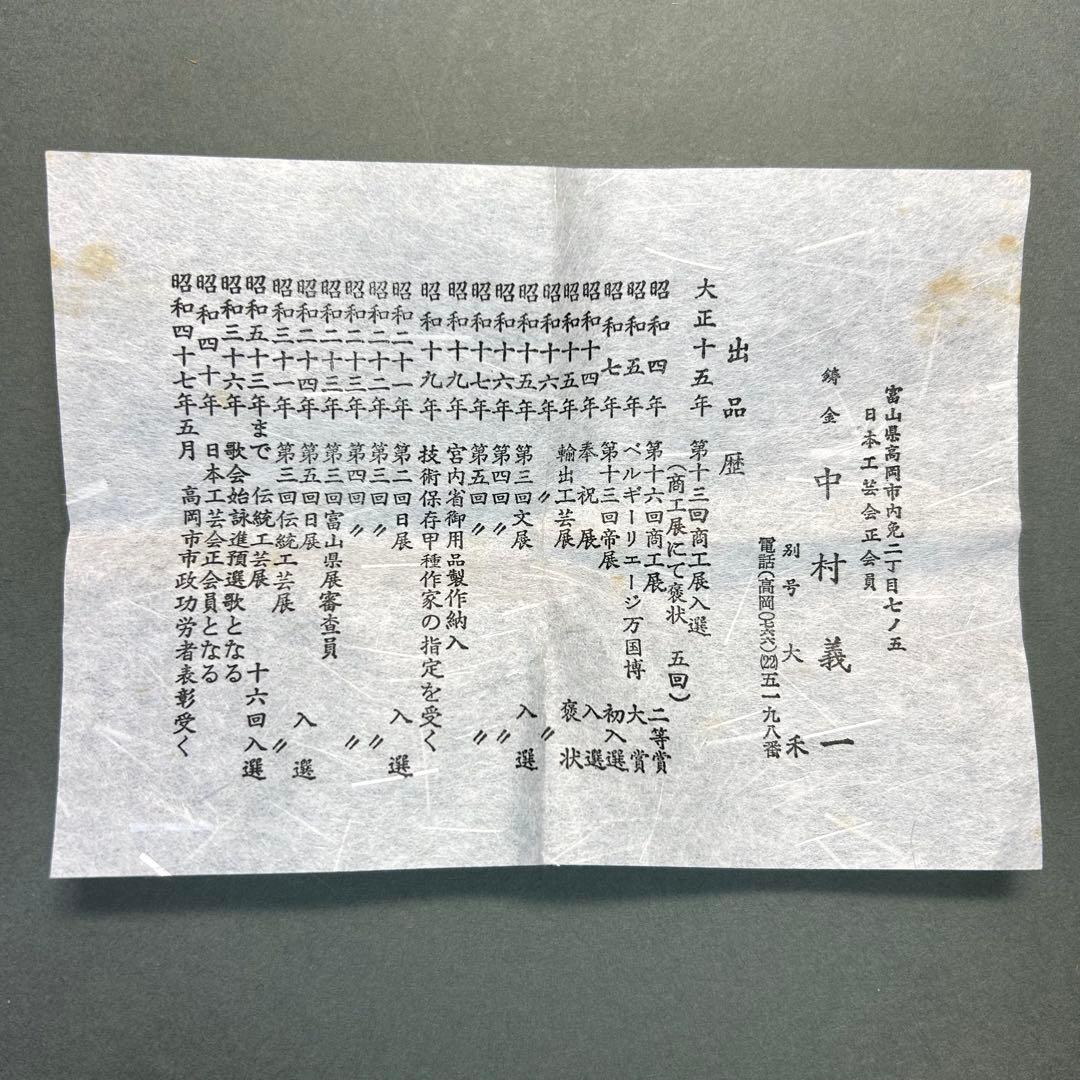 富山県高岡市内免二丁目七ノ五
日本工芸会正会員
鋳金 中村義一
別号 大禾
電話(高岡〇七六六)(22)五一九八番
出品歴
大正十五年 第十三回商工展入選
(商工展にて褒状 五回)
昭和四年 第十六回商工展 二等賞
昭和五年 ベルギーリエージ万国博 大賞
昭和七年 第十三回帝展 初入選
昭和十四年 奉祝展 入選
昭和十五年 輸出工芸展 褒状
昭和十六年 〃 〃
昭和十五年 第三回文展 入選
昭和十六年 第四回〃 〃
昭和十七年 第五回〃 〃
昭和十九年 宮内省御用品製作納入
昭和十九年 技術保存甲種作家の指定を受く
昭和二十一年 第二回日展 入選
昭和二十二年 第三回〃 〃
昭和二十三年 第四回〃 〃
昭和二十三年 第三回富山県展審査員
昭和二十四年 第五回日展 入選
昭和三十一年 第三回伝統工芸展 〃
昭和五十三年まで 伝統工芸展 十六回入選
昭和三十六年 歌会始詠進預選歌となる
昭和四十年 日本工芸会正会員となる
昭和四十七年五月 高岡市市政功労者表彰受く